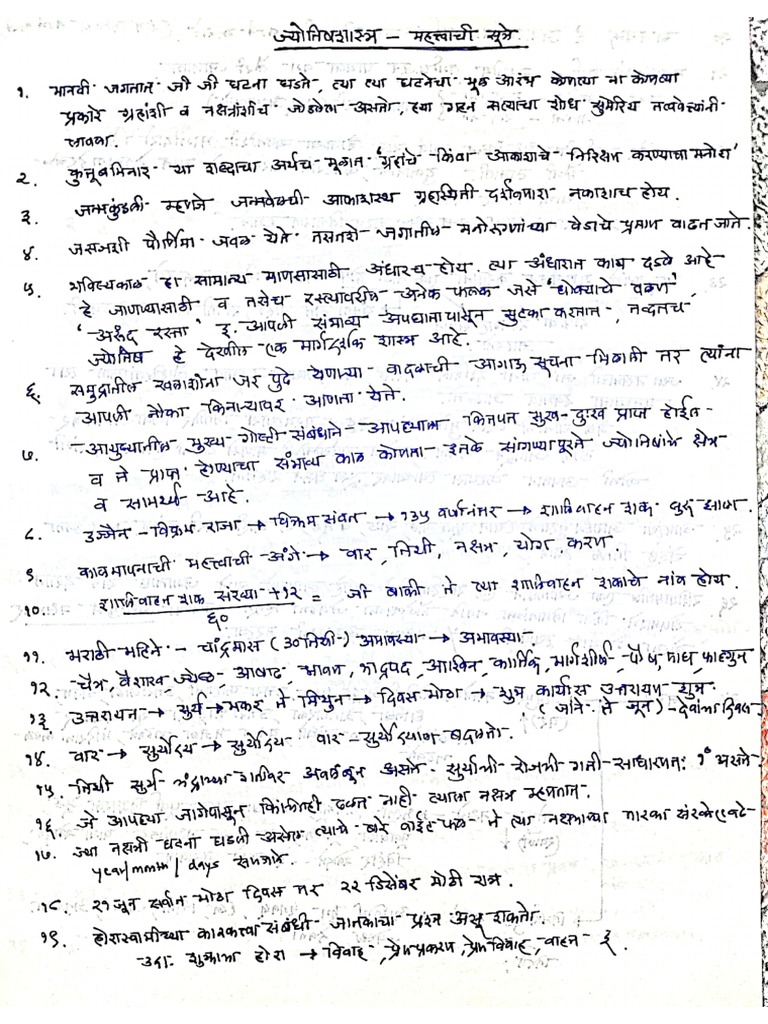 ज्योतिषशास्त्र - महत्त्वाची सूत्रे
१. मानवी जगतात जी जी घटना घडते, त्या त्या घटनेचा मूळ आरंभ कोणत्या ना कोणत्या
प्रकारे ग्रहांशी व नक्षत्रांशीच जोडलेला असतो, ह्या गहन सत्याचा शोध सुमेरिय तत्ववेत्यांनी
लावला.
२. कुतूबमिनार - या शब्दाचा अर्थच मूळात 'ग्रहांचे किंवा आकाशाचे निरिक्षण करण्याचा मनोरा'
३. जन्मकुंडली म्हणजे जन्मवेळची आकाशस्थ ग्रहस्थिती दर्शवणारा नकाशाच होय.
४. जसजशी पौर्णिमा जवळ येते तसतशे जगातील मनोरुग्णांच्या वेडाचे प्रमाण वाढत जाते.
५. भविष्यकाळ हा सामान्य माणसासाठी अंधारच होय. त्या अंधारात काय दडले आहे
हे जाणण्यासाठी व तसेच रस्त्यांवरील अनेक फलक जसे 'धोक्याचे वळण',
'अरुंद रस्ता' इ. आपली संभाव्य अपघातापासून सुटका करतात, तद्वतच
ज्योतिष हे देखील एक मार्गदर्शक शास्त्र आहे.
६. समुद्रातील खलाशीना जर पुढे येणाऱ्या वादळाची आगाऊ सूचना मिळाली तर त्यांना
आपली नौका किनाऱ्यावर आणता येते.
७. आयुष्यातील मुख्य गोष्टी संबंधाने आपल्याला कितपत सुख-दुःख प्राप्त होईल
व ते प्राप्त होण्याचा संभाव्य काळ कोणता इतके सांगण्यापूरते ज्योतिषांचे क्षेत्र
व सामर्थ्य आहे.
८. उज्जैन - विक्रम राजा → विक्रम संवत → १३५ वर्षानंतर → शालिवाहन शक सुरू झाला.
९. कालमापनाची महत्त्वाची अंगे → वार, तिथी, नक्षत्र, योग करण
१०. शालिवाहन शक संख्या + १२ = जी बाकी ते त्या शालिवाहन शकाचे नांव होय.
६०
११. मराठी महिने - चांद्रमास (३० तिथी) अमावस्या → अमावस्या.
१२. चैत्र, वैशाख ज्येष्ठ आषाढ, श्रावण, भाद्रपद, आश्विन, कार्तिक, मार्गशीर्ष - पौष, माघ, फाल्गुन
१३. उत्तरायन → सुर्य → मकर ते मिथुन → दिवस मोठा → शुभ कार्यास उत्तरायण शुभ
(जाने ते जून) - देवांचा दिवस.
१४. वार → सुर्योदय → सुर्योदय वार - सुर्योदयाला बदलतो.
१५. तिथी सुर्य चंद्राच्या गतीवर अवलंबून असते. सुर्याची रोजची गती - साधारणतः १° असते
१६. जे आपल्या जागेपासून कितीही ढळत नाही त्याला नक्षत्र म्हणतात.
१७. ज्या नक्षत्री घटना घडली असेल त्याचे बरे वाईट फळ ते त्या नक्षत्राच्या तारका संख्ये एवढे
year/month/days समजावे.
१८. २१ जून सर्वात मोठा दिवस तर २२ डिसेंबर मोठी रात्र.
१९. होरास्वामीच्या कारकत्वा संबंधी जातकाचा प्रश्न असू शकतो.
उदा. शुक्राचा होरा → विवाह, प्रेमप्रकरण, प्रेमविवाह, वाहन इ.